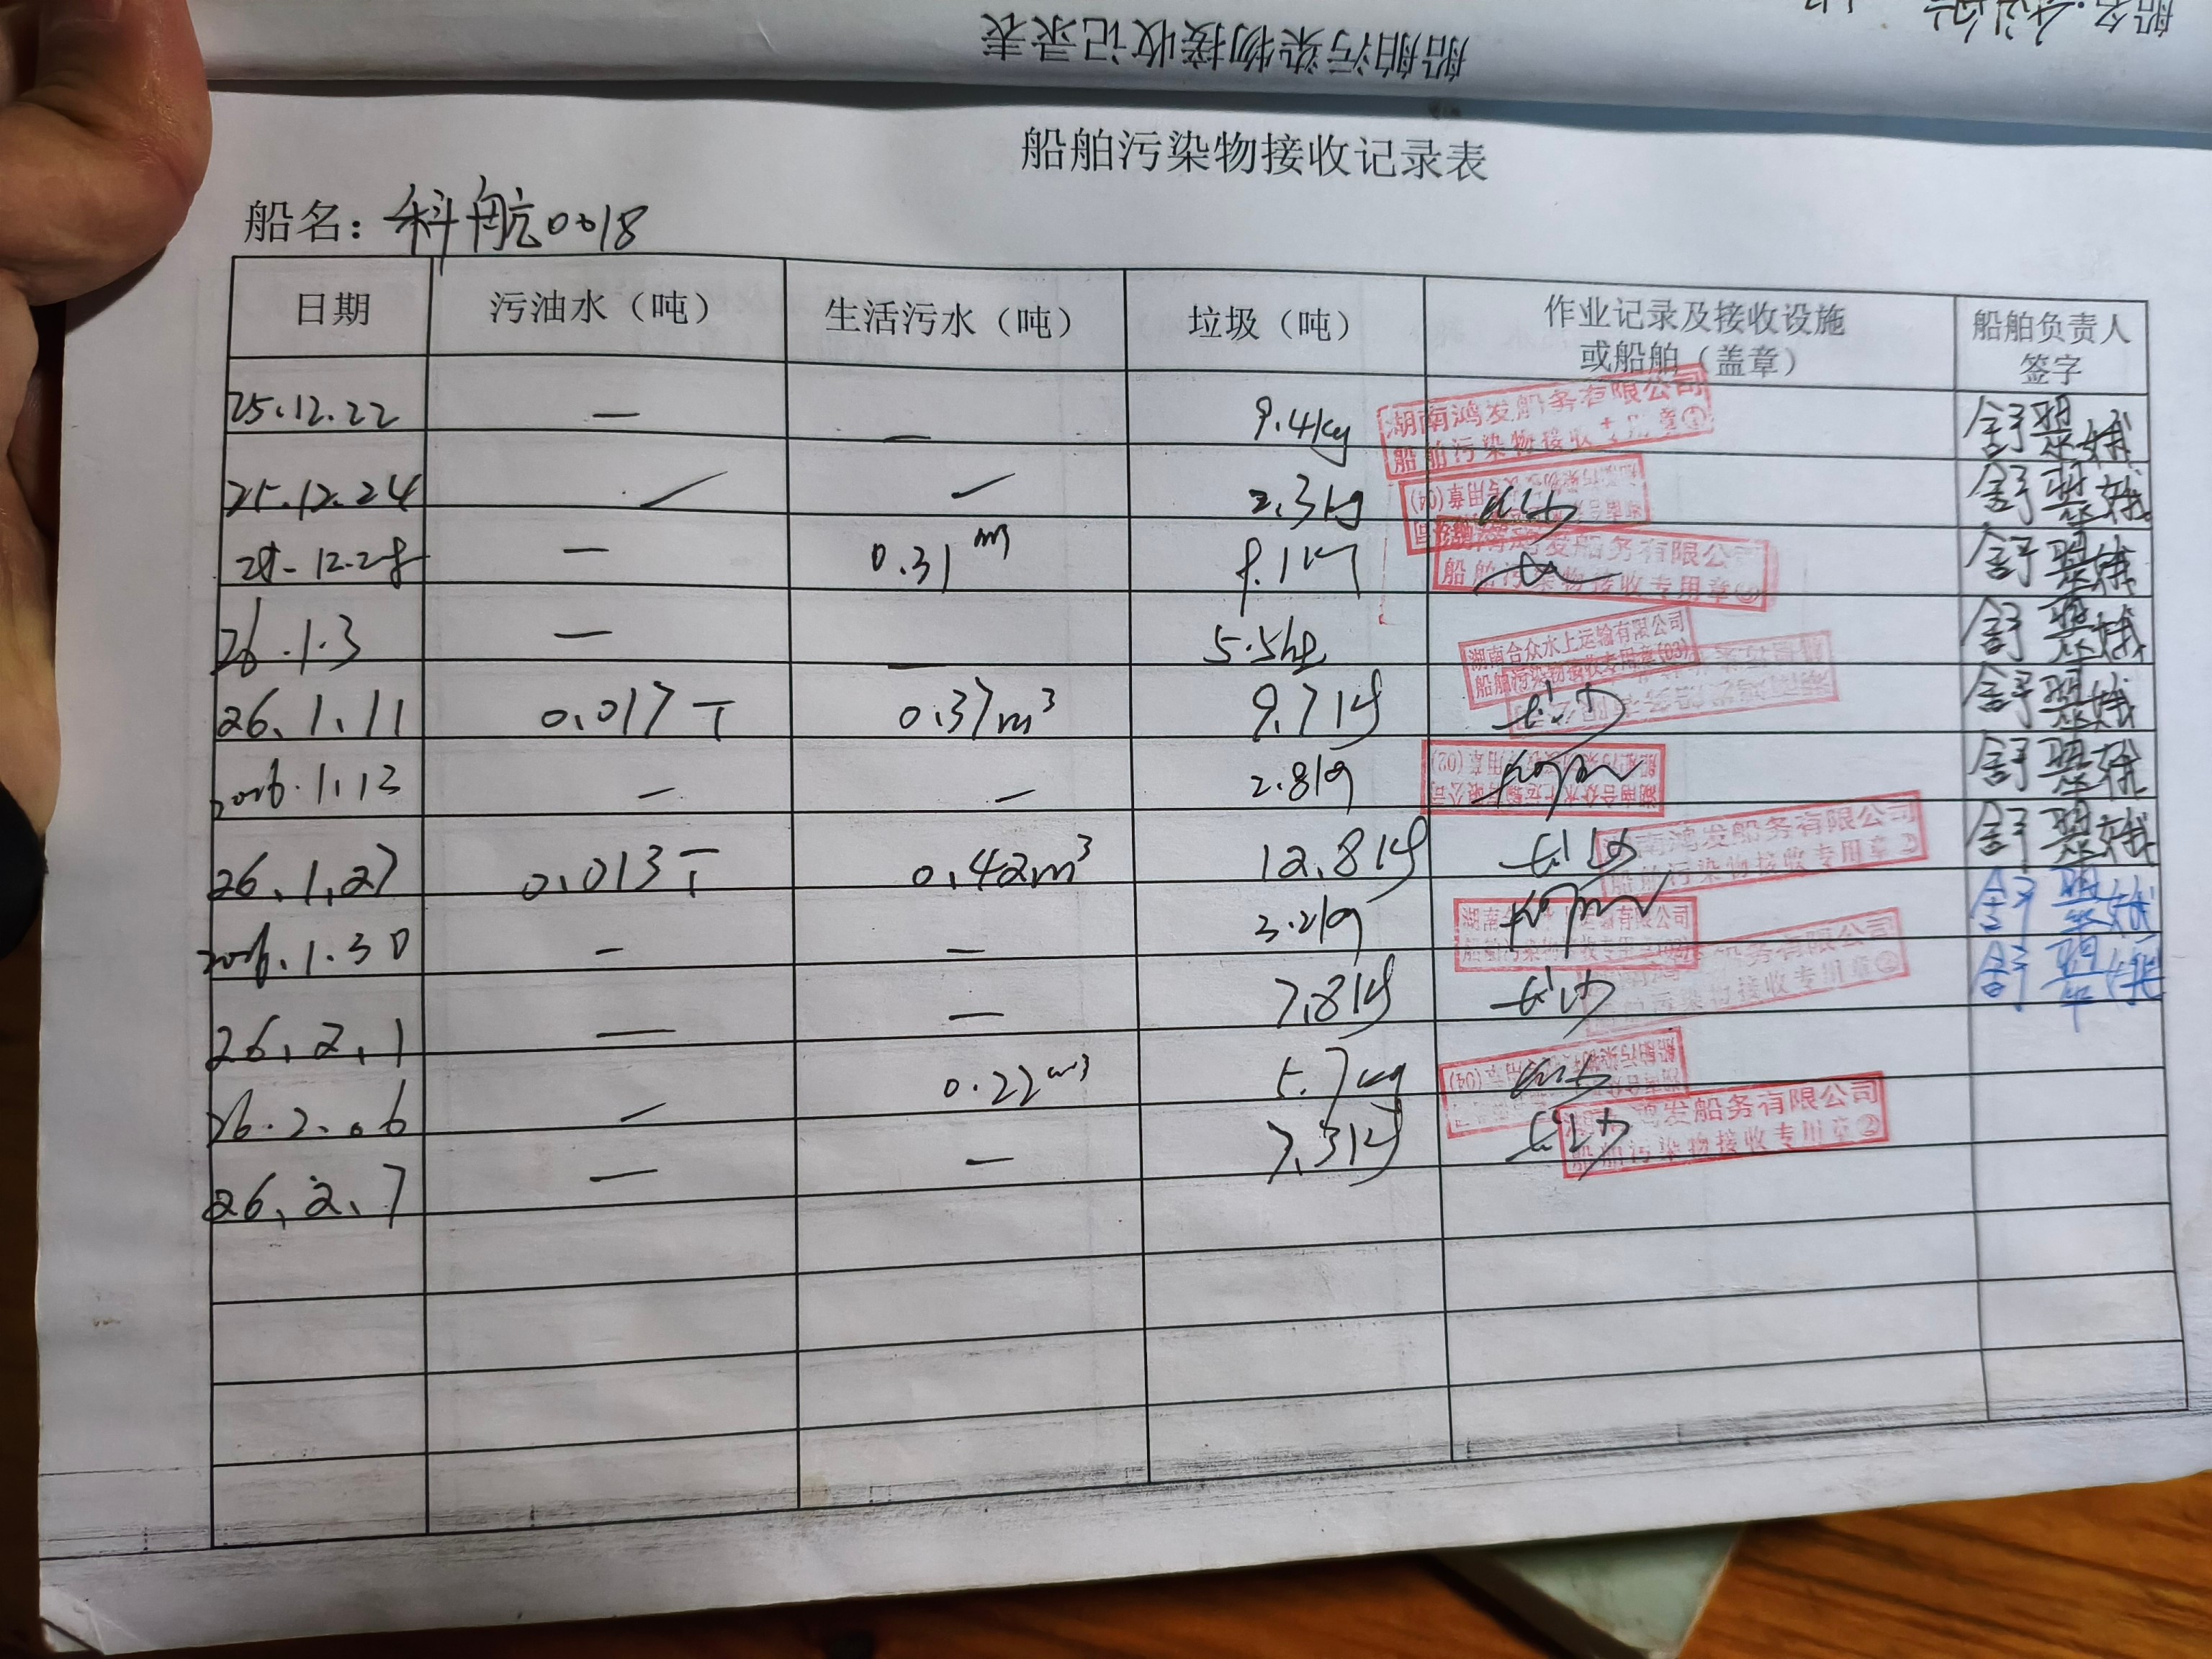 船舶污染物接收记录表
船名:
船舶污染物接收记录表
船名: 科航0018
日期 污油水（吨） 生活污水（吨） 垃圾（吨） 作业记录及接收设施或船舶（盖章） 船舶负责人签字
25.12.22 — — 9.4kg 湖南鸿发船务有限公司 船舶污染物接收专用章①
25.12.24 — — 2.3kg (04)
25.12.28 — 0.31 m³ 9.1kg 发船务有限公司 船舶污染物接收专用章
26.1.3 — — 5.5kg 湖南合众水上运输有限公司 船舶污染物接收专用章(03)
26.1.11 0.017T 0.37m³ 9.7kg
2026.1.13 — — 2.8kg 湖南合众水上运输有限公司 (02)
26.1.27 0.013T 0.42m³ 12.8kg 南鸿发船务有限公司 船舶污染物接收专用章②
2026.1.30 — — 3.2kg 湖南合 有限公司
26.2.1 — — 7.8kg 船务有限公司 污染物接收专用章②
26.2.06 — 0.22m³ 5.7kg (04)
26.2.7 — — 7.3kg 鸿发船务有限公司 船舶污染物接收专用章②